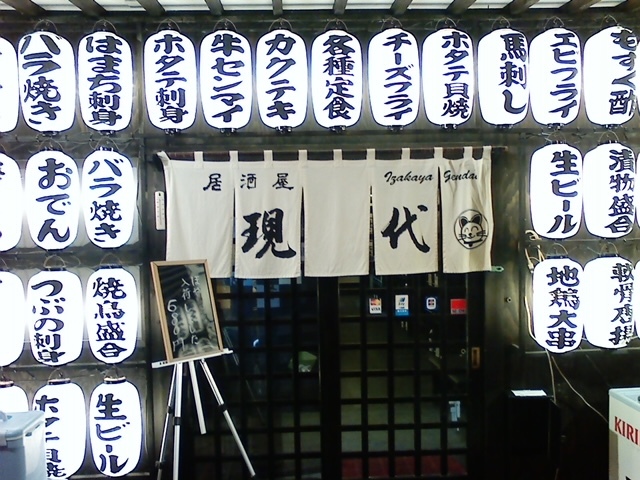 バラ焼き
はまち刺身
ホタテ刺身
牛センマイ
カクテキ
各種定食
チーズフライ
ホタテ貝焼
馬刺し
エビフライ
もずく酢
居酒屋
現代
Izakaya Gendai
おでん
バラ焼き
生ビール
漬物盛合
つぶの刺身
焼鳥盛合
地鶏大串
軟骨唐揚
ホタテ貝焼
生ビール
入荷
KIRI